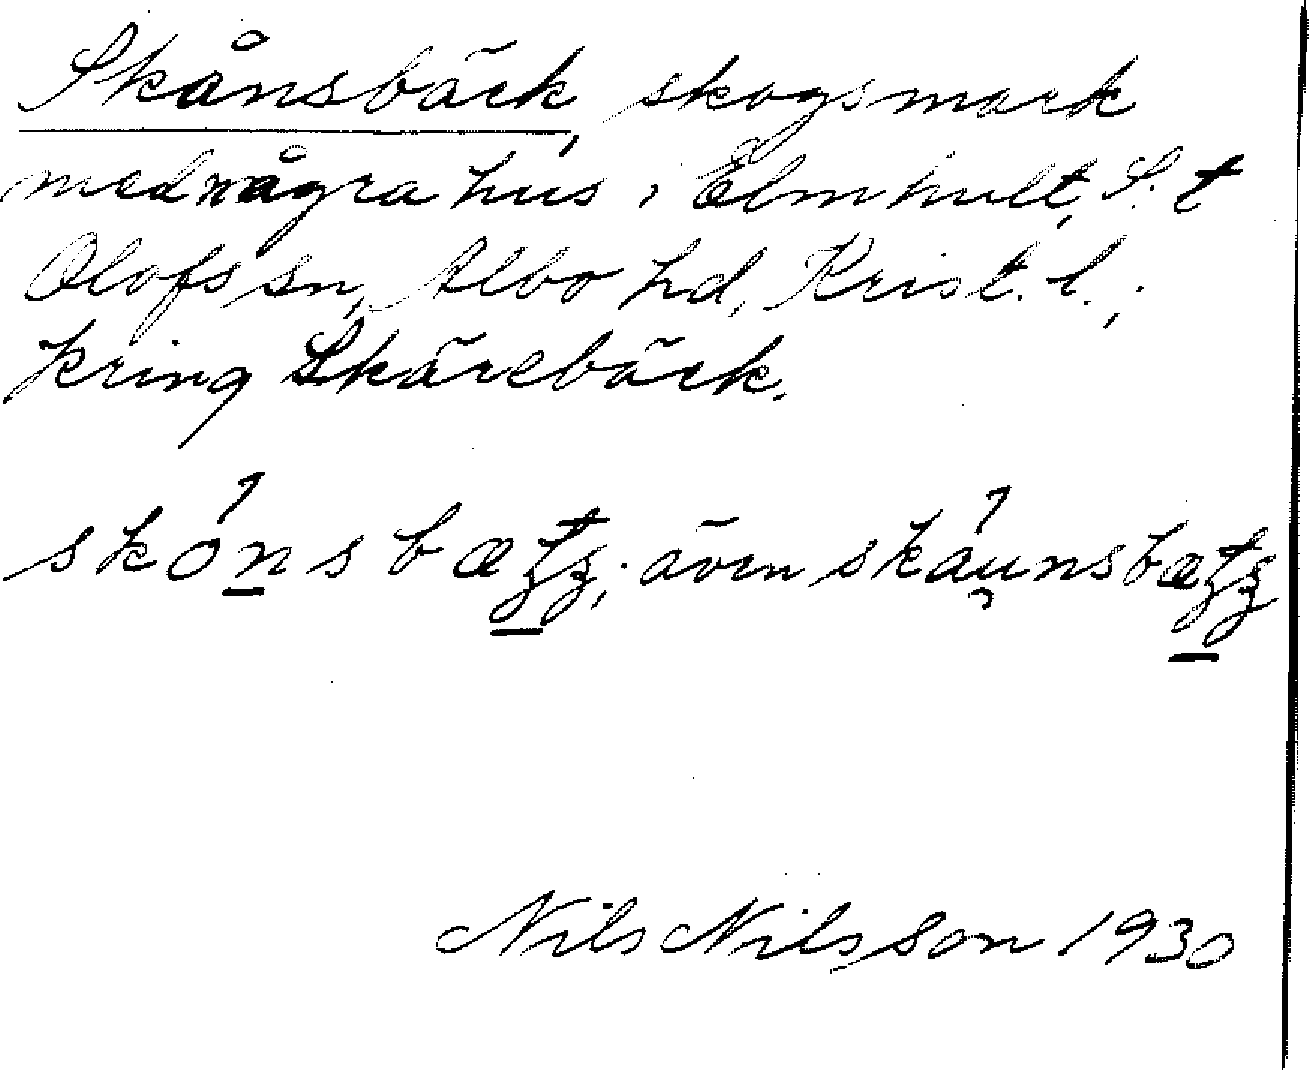 Skånsbäck, skogsmark
med några hus i Elmhult, S:t
Olofs sn, Albo hd, Krist. l.,
kring Skärebäck.
skónsbætʒ; även skáunsbætʒ
Nils Nilsson 1930